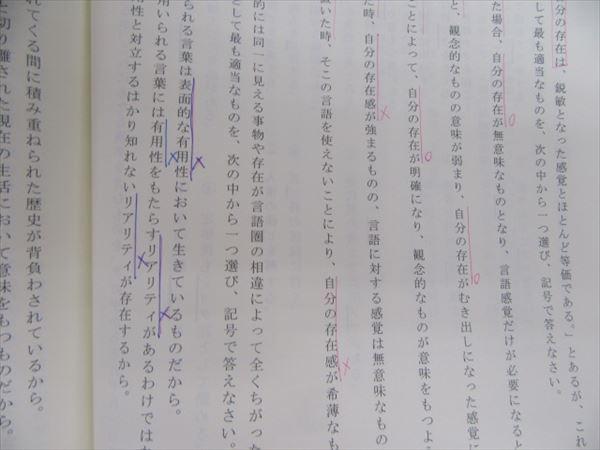 分の存在は、鋭敏となった感覚とほとんど等価である。」とあるが、これ
して最も適当なものを、次の中から一つ選び、記号で答えなさい。
た場合、自分の存在が無意味なものとなり、言語感覚だけが必要になると
と、観念的なものの意味が弱まり、自分の存在がむき出しになった感覚に
ことによって、自分の存在が明確になり、観念的なものが意味をもつよう
た時、自分の存在感が強まるものの、言語に対する感覚は無意味なもの
置いた時、そこの言語を使えないことにより、自分の存在感が希薄なも
的には同一に見える事物や存在が言語圏の相違によって全くちがった
として最も適当なものを、次の中から一つ選び、記号で答えなさい。
られる言葉は表面的な有用性において生きているものだから。
用いられる言葉には有用性をもたらすリアリティがあるわけでは
性と対立するはかり知れないリアリティが存在するから。
れてくる間に積み重ねられた歴史が背負わされているから。
切り離された現在の生活において意味をもつものだから。